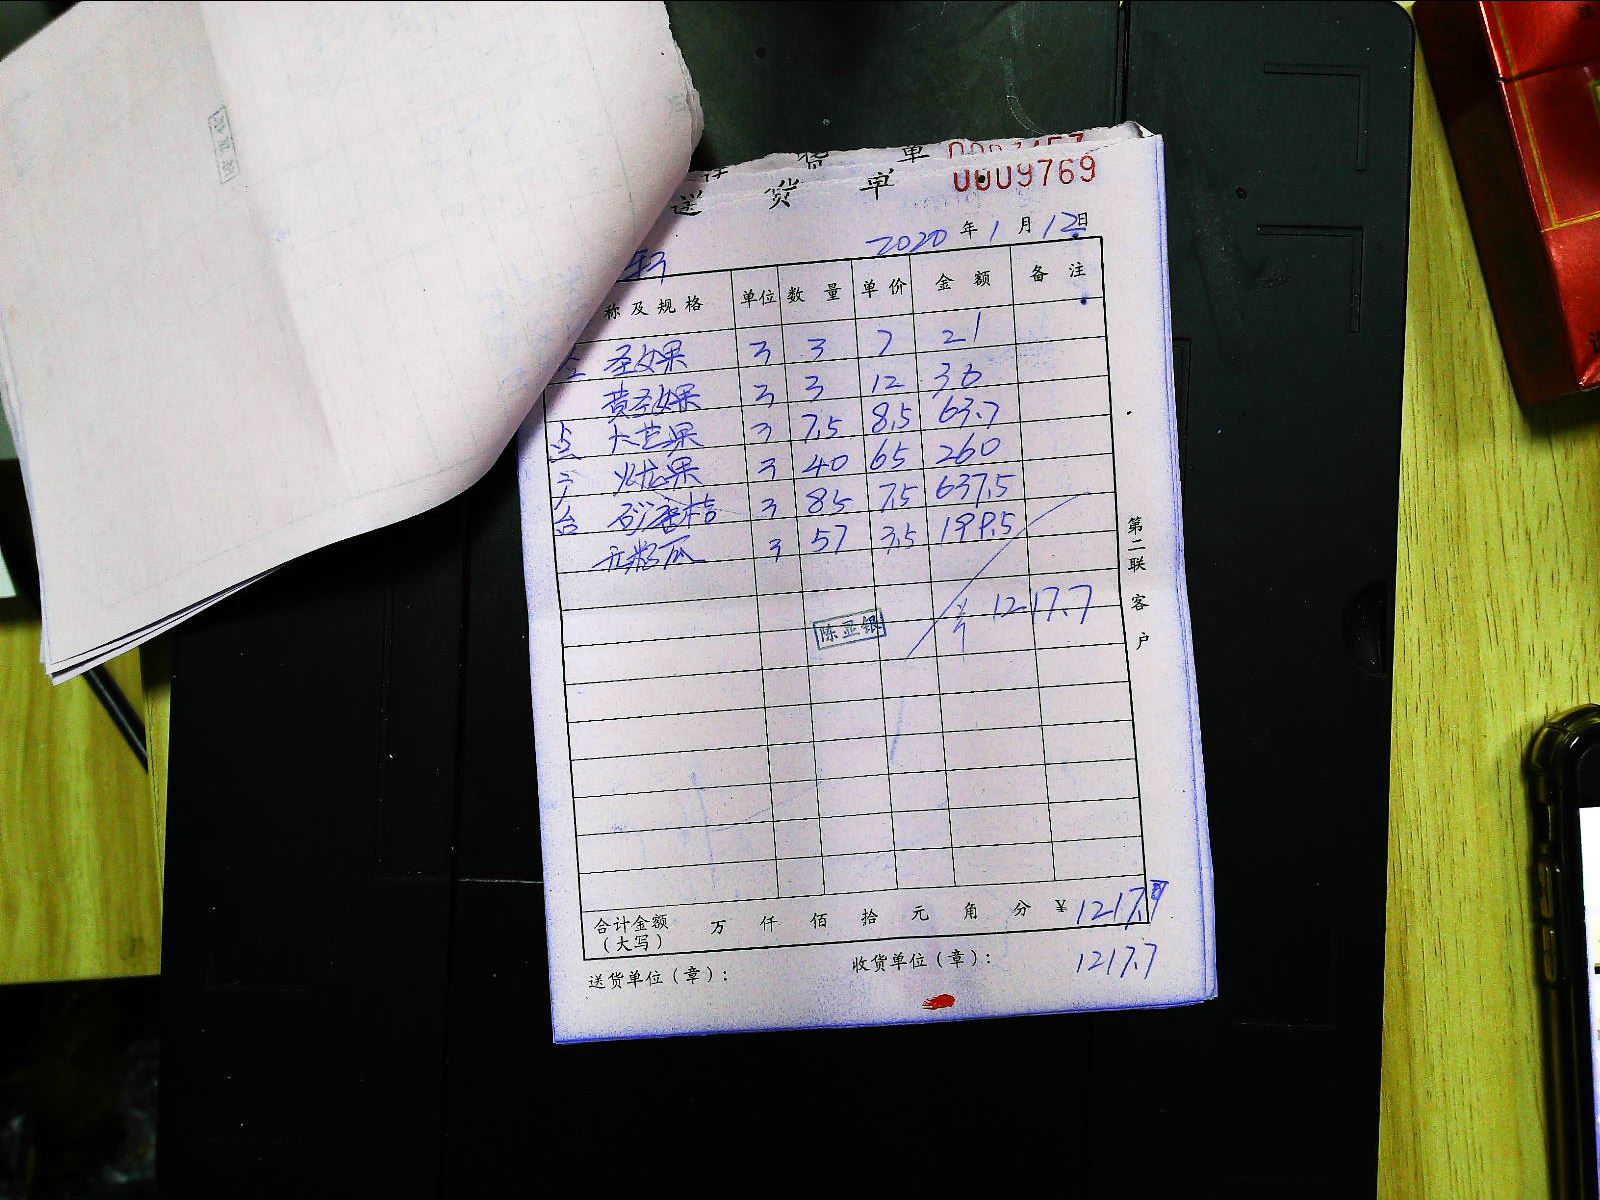 送 货 单 0009769
2020 年 1 月 12 日
称 及 规 格 单位 数 量 单 价 金 额 备 注
圣女果 3 3 7 21
黄圣女果 3 3 12 36
点 大芒果 3 7.5 8.5 63.7
火龙果 3 40 65 260
台 砂唐桔 3 85 7.5 637.5
无籽瓜 3 57 3.5 199.5
¥ 1217.7
陈亚银
第二联 客户
合计金额 万 仟 佰 拾 元 角 分 ¥ 1217.7
(大写)
送货单位(章): 收货单位(章): 1217.7